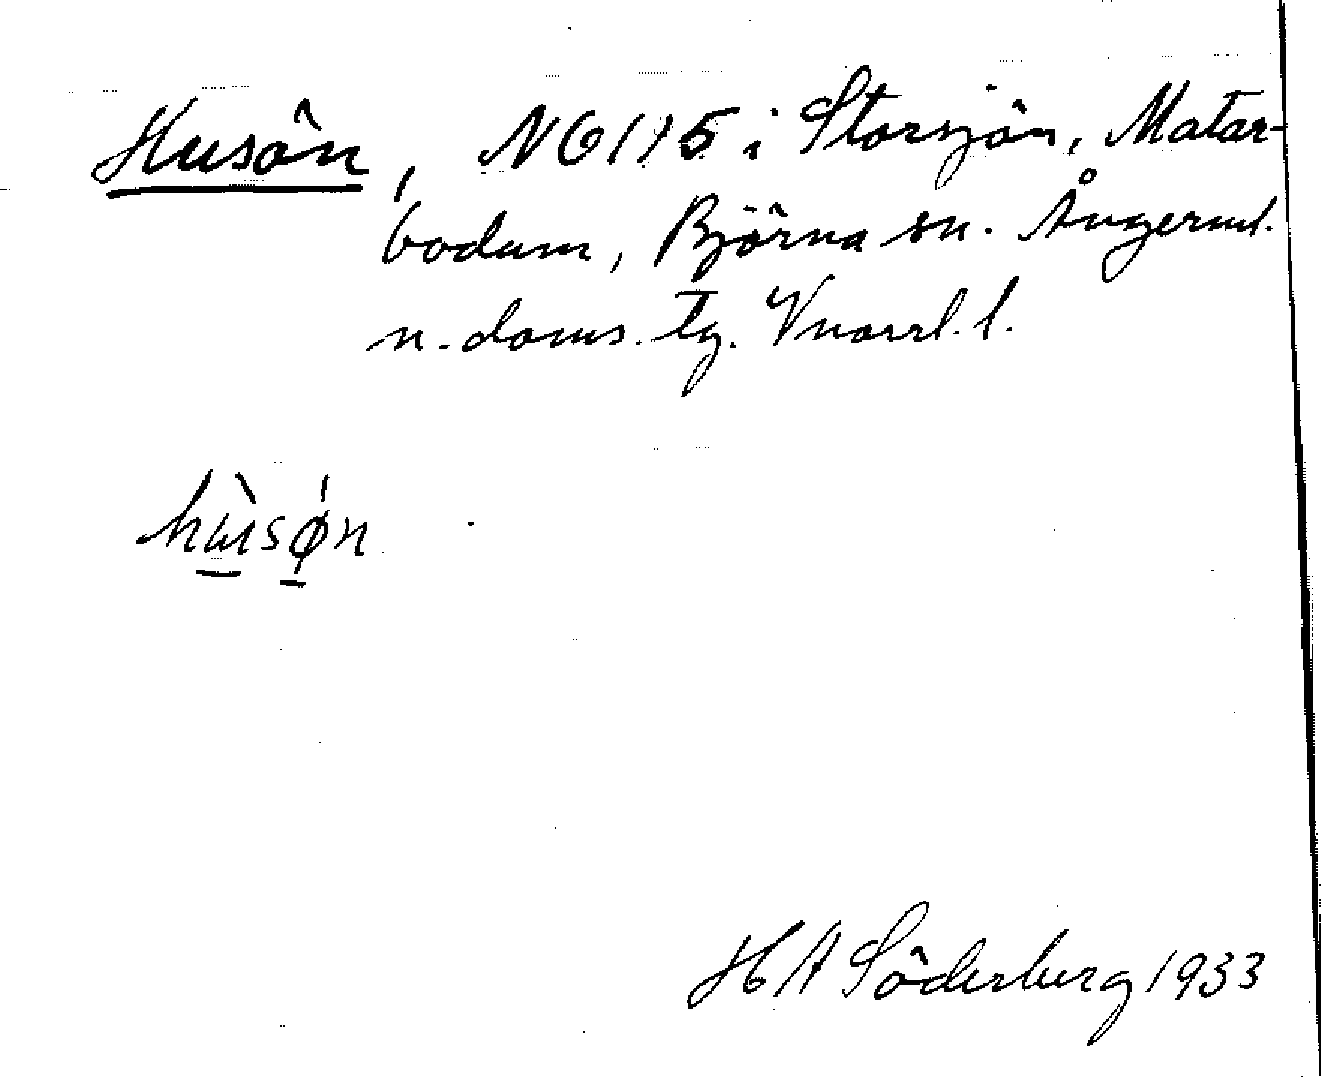 Husön, NG175 i Storsjön, Matar-
bodum, Björna sn. Ångerml.
n. doms. tg. Vnorrl. l.
hùsø̀n
H A Söderberg 1933